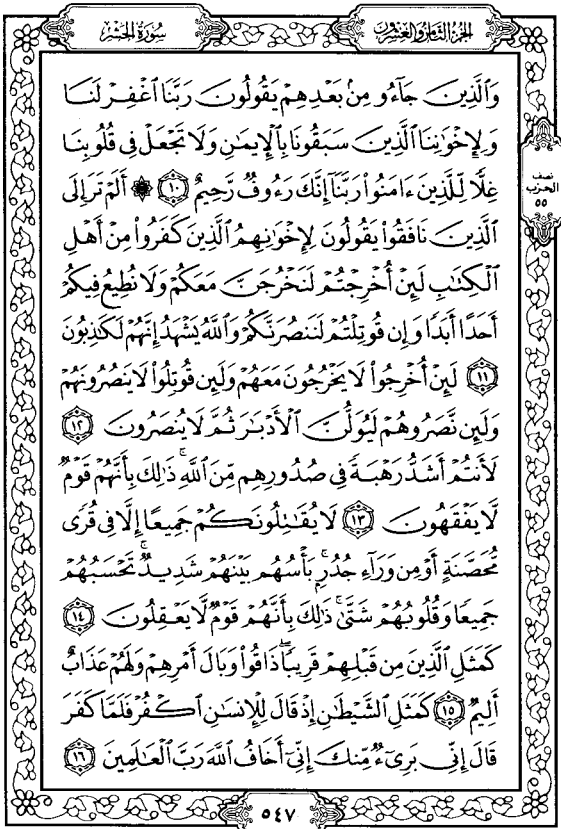 سُورَةُ الحَشْرِ
الجزءُ الثَّامِنُ وَالعِشْرُونَ
وَٱلَّذِينَ جَآءُو مِنۢ بَعْدِهِمْ يَقُولُونَ رَبَّنَا ٱغْفِرْ لَنَا
وَلِإِخْوَٰنِنَا ٱلَّذِينَ سَبَقُونَا بِٱلْإِيمَٰنِ وَلَا تَجْعَلْ فِى قُلُوبِنَا
غِلًّا لِّلَّذِينَ ءَامَنُوا۟ رَبَّنَآ إِنَّكَ رَءُوفٌ رَّحِيمٌ ١٠ ۞ أَلَمْ تَرَ إِلَى
ٱلَّذِينَ نَافَقُوا۟ يَقُولُونَ لِإِخْوَٰنِهِمُ ٱلَّذِينَ كَفَرُوا۟ مِنْ أَهْلِ
ٱلْكِتَٰبِ لَئِنْ أُخْرِجْتُمْ لَنَخْرُجَنَّ مَعَكُمْ وَلَا نُطِيعُ فِيكُمْ
أَحَدًا أَبَدًا وَإِن قُوتِلْتُمْ لَنَنصُرَنَّكُمْ وَٱللَّهُ يَشْهَدُ إِنَّهُمْ لَكَٰذِبُونَ
١١ لَئِنْ أُخْرِجُوا۟ لَا يَخْرُجُونَ مَعَهُمْ وَلَئِن قُوتِلُوا۟ لَا يَنصُرُونَهُمْ
وَلَئِن نَّصَرُوهُمْ لَيُوَلُّنَّ ٱلْأَدْبَٰرَ ثُمَّ لَا يُنصَرُونَ ١٢
لَأَنتُمْ أَشَدُّ رَهْبَةً فِى صُدُورِهِم مِّنَ ٱللَّهِ ۚ ذَٰلِكَ بِأَنَّهُمْ قَوْمٌ
لَّا يَفْقَهُونَ ١٣ لَا يُقَٰتِلُونَكُمْ جَمِيعًا إِلَّا فِى قُرًى
مُّحَصَّنَةٍ أَوْ مِن وَرَآءِ جُدُرٍۭ ۚ بَأْسُهُم بَيْنَهُمْ شَدِيدٌ ۚ تَحْسَبُهُمْ
جَمِيعًا وَقُلُوبُهُمْ شَتَّىٰ ۚ ذَٰلِكَ بِأَنَّهُمْ قَوْمٌ لَّا يَعْقِلُونَ ١٤
كَمَثَلِ ٱلَّذِينَ مِن قَبْلِهِمْ قَرِيبًا ۖ ذَاقُوا۟ وَبَالَ أَمْرِهِمْ وَلَهُمْ عَذَابٌ
أَلِيمٌ ١٥ كَمَثَلِ ٱلشَّيْطَٰنِ إِذْ قَالَ لِلْإِنسَٰنِ ٱكْفُرْ فَلَمَّا كَفَرَ
قَالَ إِنِّى بَرِىٓءٌ مِّنكَ إِنِّىٓ أَخَافُ ٱللَّهَ رَبَّ ٱلْعَٰلَمِينَ ١٦
نصف
الحزب
٥٥
٥٤٧